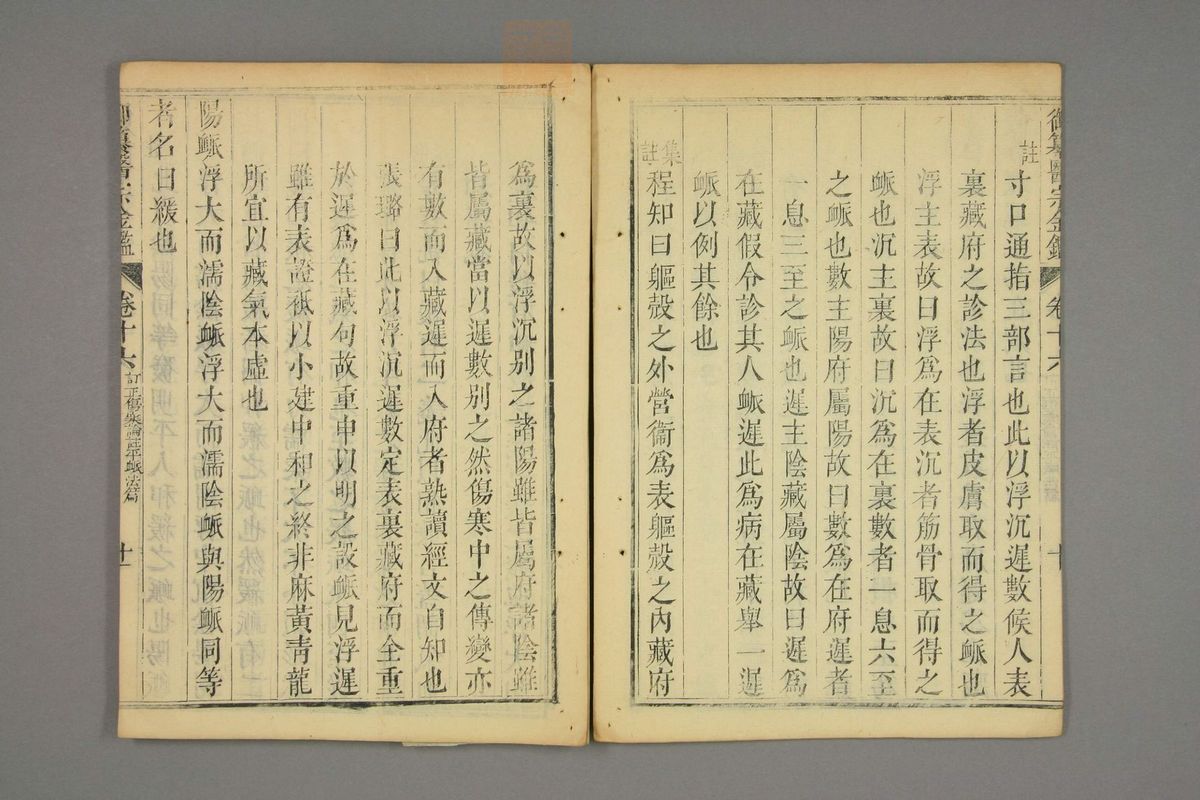 御纂醫宗金鑑 卷十六 十
註
寸口通指三部言也此以浮沉遲數候人表
裏藏府之診法也浮者皮膚取而得之䘑也
浮主表故曰浮爲在表沉者筋骨取而得之
䘑也沉主裏故曰沉爲在裏數者一息六至
之䘑也數主陽府屬陽故曰數爲在府遲者
一息三至之䘑也遲主陰藏屬陰故曰遲爲
在藏假令診其人䘑遲此爲病在藏舉一遲
䘑以例其餘也
集註
程知曰軀殼之外營衞爲表軀殼之內藏府
爲裏故以浮沉别之諸陽雖皆屬府諸陰雖
皆屬藏當以遲數别之然傷寒中之傳變亦
有數而入藏遲而入府者熟讀經文自知也
張璐曰此以浮沉遲數定表裏藏府而全重
於遲爲在藏句故重申以明之設䘑見浮遲
雖有表證祗以小建中和之終非麻黃靑龍
所宜以藏氣本虛也
陽䘑浮大而濡陰䘑浮大而濡陰䘑與陽䘑同等
者名曰緩也
御纂醫宗金鑑 卷十六 訂正傷寒論註平䘑法篇 十一